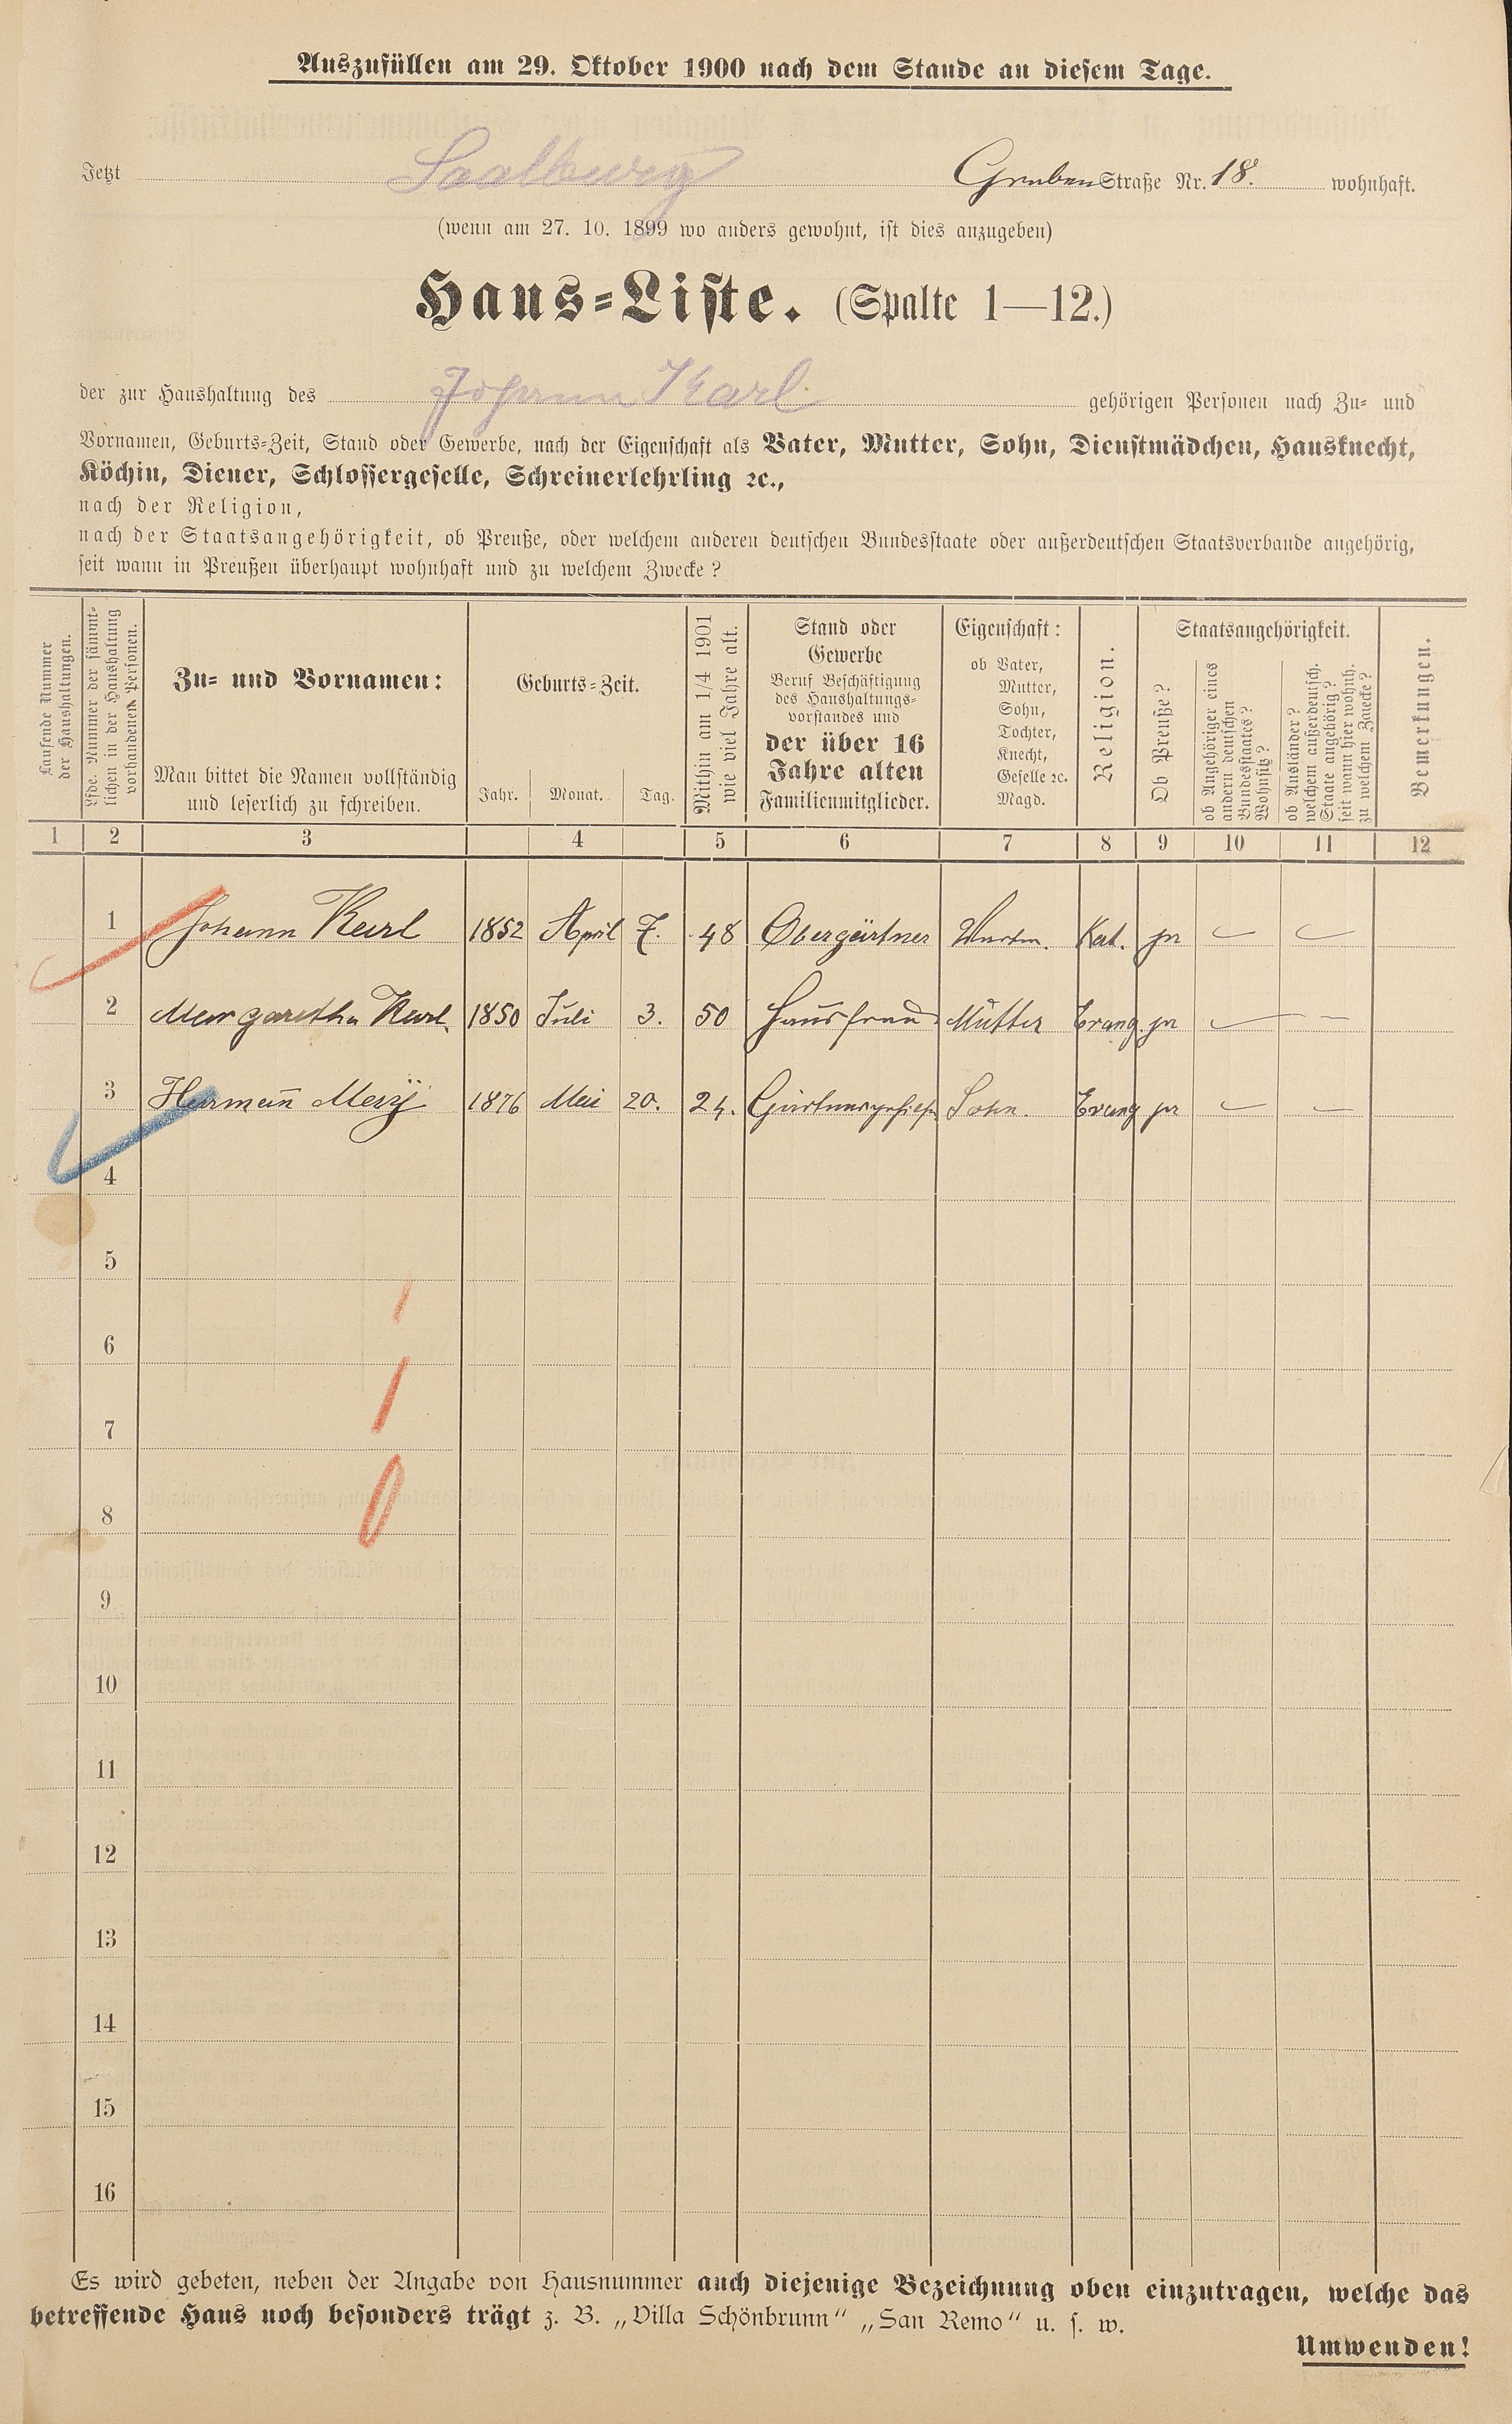 Auszufüllen am 29. Oktober 1900 nach dem Stande an diesem Tage.
Jetzt Saalburg Gruben Straße Nr. 18. wohnhaft.
(wenn am 27. 10. 1899 wo anders gewohnt, ist dies anzugeben)
Haus-Liste. (Spalte 1—12.)
der zur Haushaltung des Johann Karl gehörigen Personen nach Zu- und
Vornamen, Geburts-Zeit, Stand oder Gewerbe, nach der Eigenschaft als Vater, Mutter, Sohn, Dienstmädchen, Hausknecht,
Köchin, Diener, Schlossergeselle, Schreinerlehrling ꝛc.,
nach der Religion,
nach der Staatsangehörigkeit, ob Preuße, oder welchem anderen deutschen Bundesstaate oder außerdeutschen Staatsverbande angehörig,
seit wann in Preußen überhaupt wohnhaft und zu welchem Zwecke?
Laufende Nummer
der Haushaltungen.
Lfde. Nummer der sämmt-
lichen in der Haushaltung
vorhandenen Personen.
Zu- und Vornamen:
Man bittet die Namen vollständig
und leserlich zu schreiben.
Geburts-Zeit.
Jahr. Monat. Tag.
Mithin am 1/4 1901
wie viel Jahre alt.
Stand oder
Gewerbe
Beruf Beschäftigung
des Haushaltungs-
vorstandes und
der über 16
Jahre alten
Familienmitglieder.
Eigenschaft:
ob Vater,
Mutter,
Sohn,
Tochter,
Knecht,
Geselle ꝛc.
Magd.
Religion.
Staatsangehörigkeit.
Ob Preuße?
ob Angehöriger eines
andern deutschen
Bundesstaates?
Wohnsitz?
ob Ausländer?
welchem außerdeutsch.
Staate angehörig?
seit wann hier wohnh.
zu welchem Zwecke?
Bemerkungen.
1 2 3 4 5 6 7 8 9 10 11 12
1 Johann Karl 1852 April 7. 48 Obergärtner Kat. ja — —
2 Margaretha Karl 1850 Juli 3. 50 Hausfrau Mutter Evang. ja — —
3 Hermann 1876 Mai 20. 24. Sohn. Evang ja — —
4
5
6
7
8
9
10
11
12
13
14
15
16
Es wird gebeten, neben der Angabe von Hausnummer auch diejenige Bezeichnung oben einzutragen, welche das
betreffende Haus noch besonders trägt z. B. „Villa Schönbrunn“ „San Remo“ u. s. w.
Umwenden!